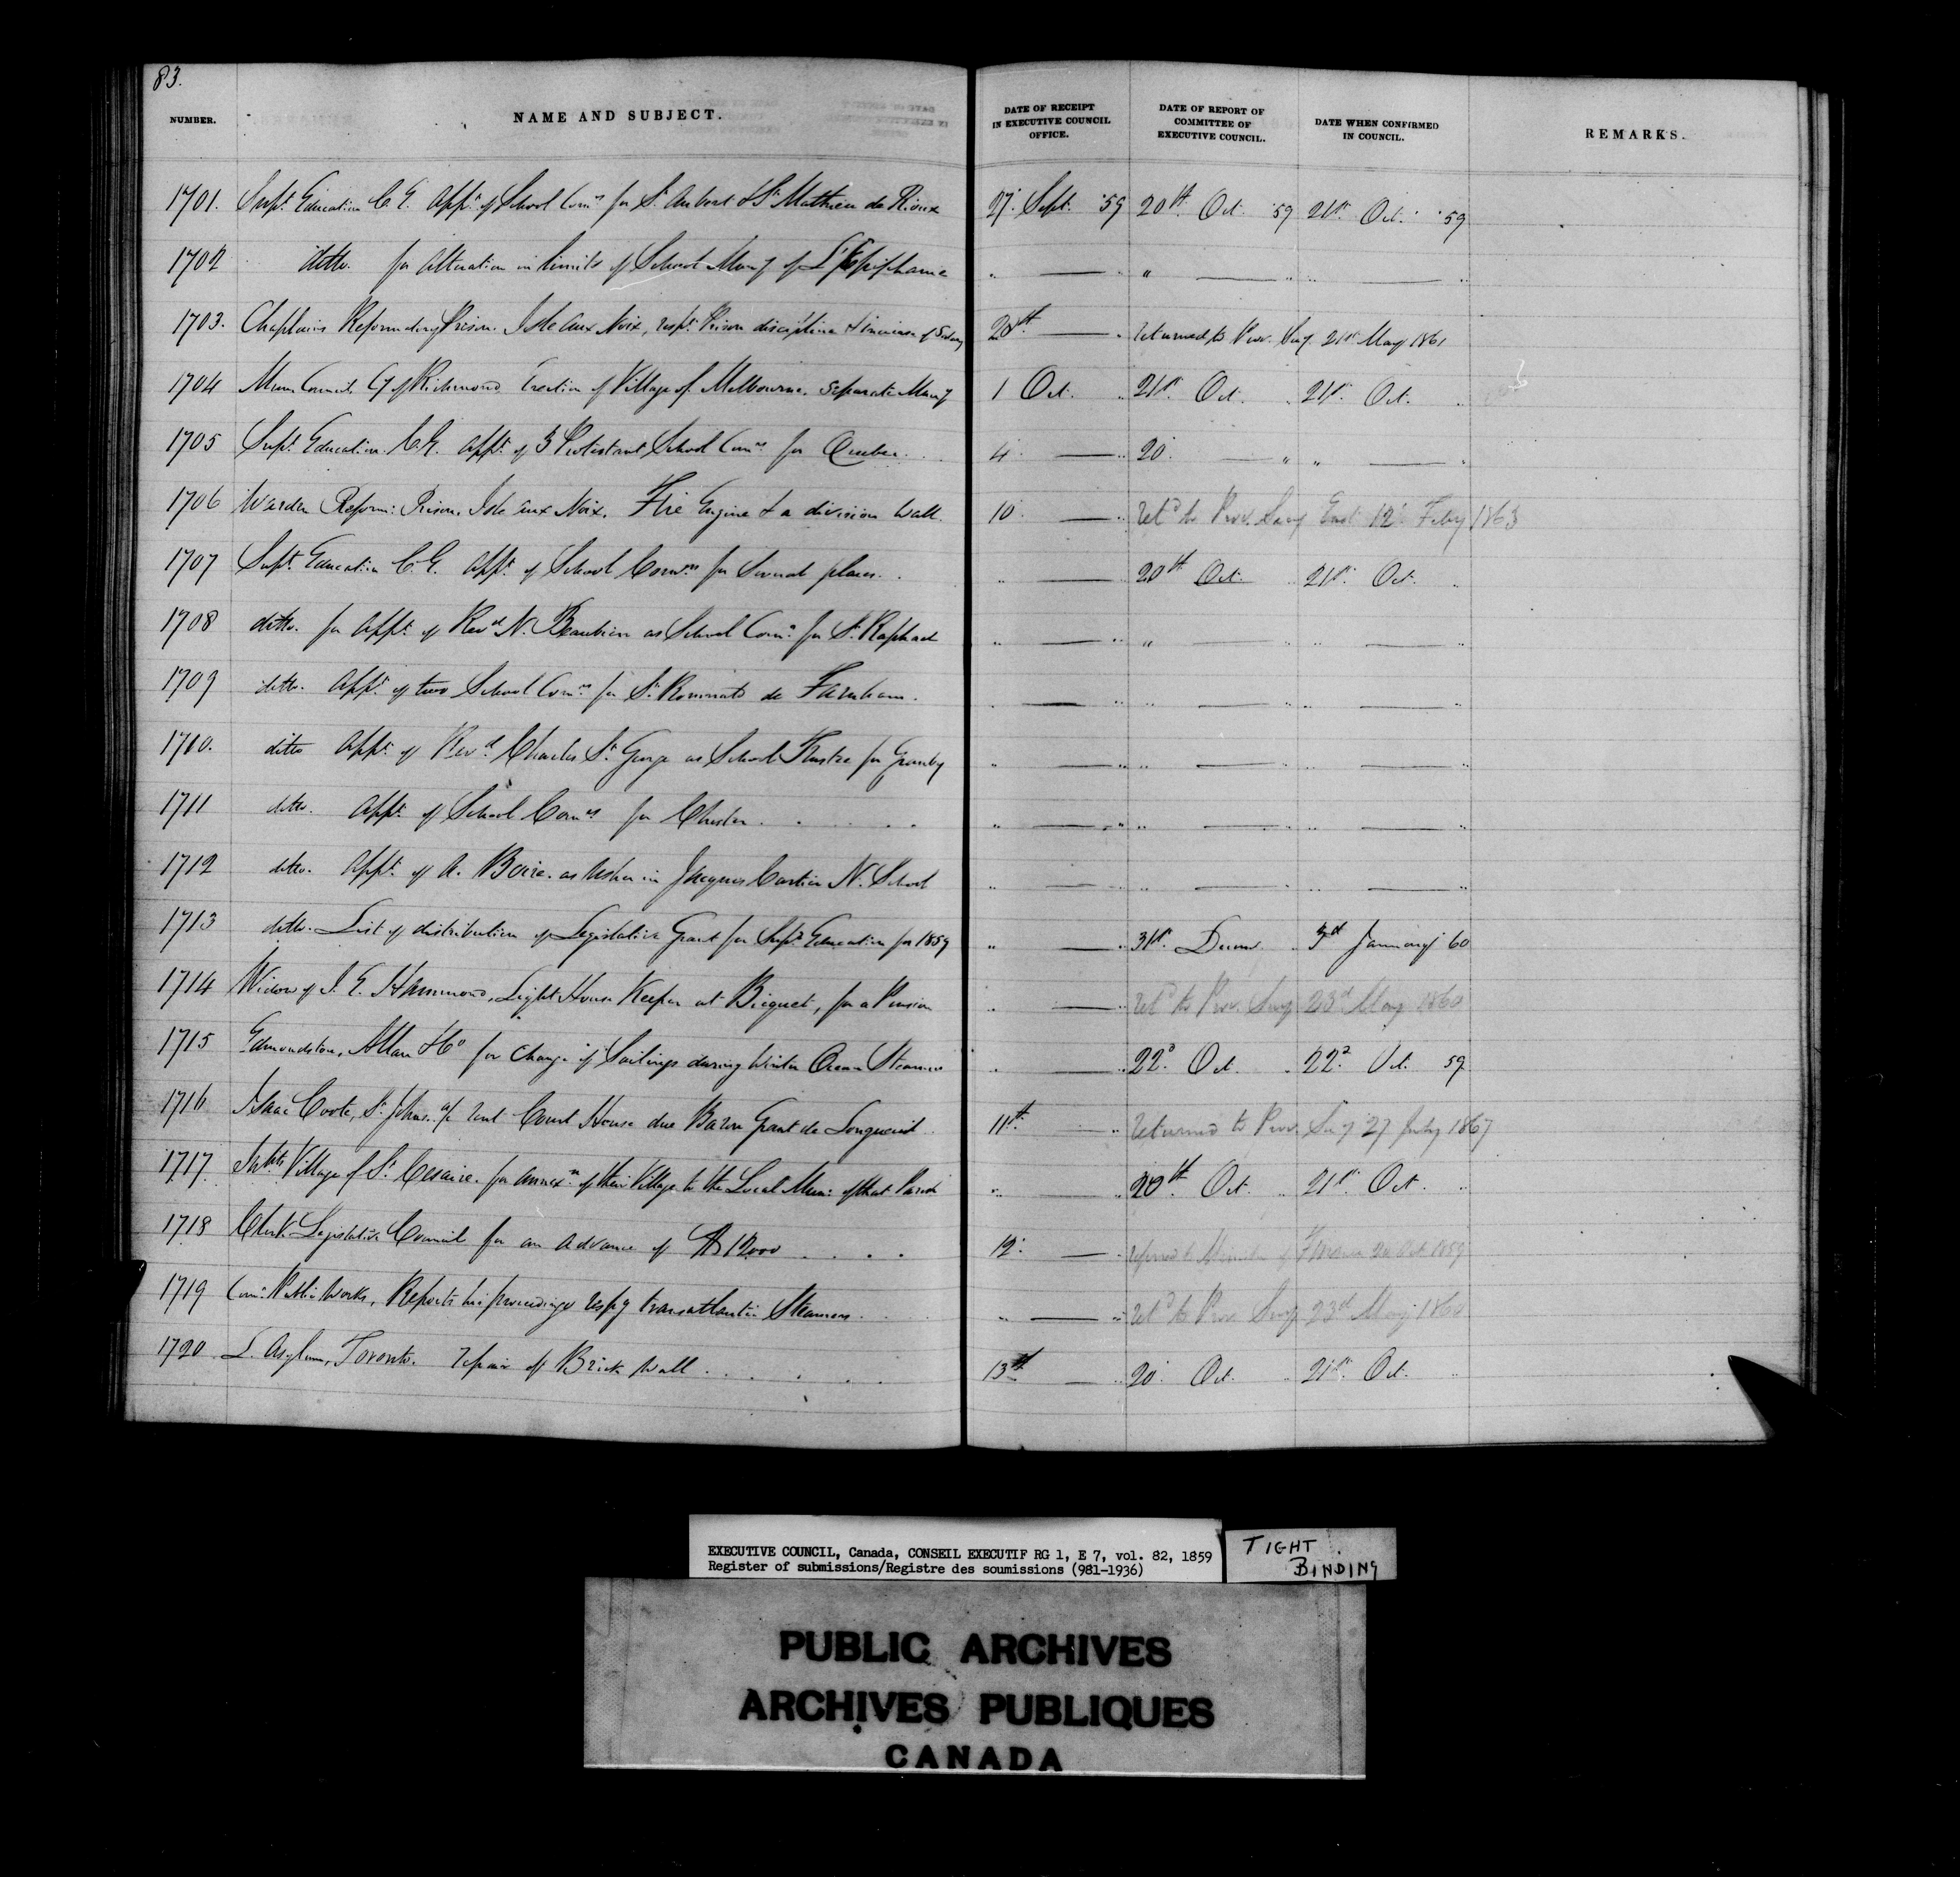 83.
NUMBER. NAME AND SUBJECT. DATE OF RECEIPT IN EXECUTIVE COUNCIL OFFICE. DATE OF REPORT OF COMMITTEE OF EXECUTIVE COUNCIL. DATE WHEN CONFIRMED IN COUNCIL. REMARKS.
1701. Supt. Education C. E. appt. of School Comrs for St. Aubert & St. Mathieu de Rioux 27. Sept. '59 20th Oct. '59 21st Oct. '59
1702 ditto. for alteration in limits of School Muny of L'Epiphanie " — " " — " " — "
1703. Chaplains Reformatory Prison. Isle aux Noix, respg. Prison discipline & increase of Salary 28th — " returned to Prov. Secy. 21st May 1861
1704 Mun. Council, Cy of Richmond, Erection of Village of Melbourne. Separate Muny 1 Oct. " 21st Oct. " 21st Oct. "
1705 Supt. Education. C. E. appt. of 3 Protestant School Comrs for Quebec. 4 — " 20 — " " — "
1706 Warden Reform: Prison. Isle aux Noix. Fire Engine & a division wall. 10 — " Retd to Prov. Secy East 12 Feby 1863
1707 Supt. Education C. E. appt. of School Comrs for Several places. " — " 20th Oct. " 21st Oct. "
1708 ditto. for appt. of Revd N. Beaubien as School Comr. for St. Raphael " — " " — " " — "
1709 ditto. appt. of two School Comrs for St. Romuald de Farnham. " — " " — " " — "
1710. ditto appt. of Revd Charles St. George as School Trustee for Granby " — " " — " " — "
1711 ditto. appt. of School Comrs for Chester. " — " " — " " — "
1712 ditto. appt. of A. Boire. as Usher in Jacques Cartier N. School " — " " — " " — "
1713 ditto. List of distribution of Legislative Grant for Supr. Education for 1859 " — " 31st. Decem. " 3d January 60
1714 Widow of J. E. Hammond, Light House Keeper at Bicquet, for a Pension " — " Retd to Prov. Secy 23d May 1860
1715 Edmondstone, Allan & Co for change of Sailings during Winter Ocean Steamers " — " 22d Oct. " 22d Oct. 59
1716 Isaac Coote, St. Johns. a/c rent Court House due Baron Grant de Longueuil 11th — " Returned to Prov. Secy 27 July 1867
1717. Inhbts Village of St. Cesaire. for annexn of their Village to the Local Mun: of that Parish " — " 20th Oct. " 21st Oct. "
1718 Clerk Legislative Council for an advance of $12000 12 — " referred to Minister of Finance 20 Oct 1859
1719 Comr. Public Works, Reports his proceedings respg transatlantic Steamers. " — " Retd to Prov. Secy 23d May 1860
1720 L. Asylum, Toronto. repair of Brick wall 13th — " 20 Oct. " 21st Oct. "
EXECUTIVE COUNCIL, Canada, CONSEIL EXECUTIF RG 1, E 7, vol. 82, 1859
Register of submissions/Registre des soumissions (981-1936)
TIGHT
BINDING
PUBLIC ARCHIVES
ARCHIVES PUBLIQUES
CANADA